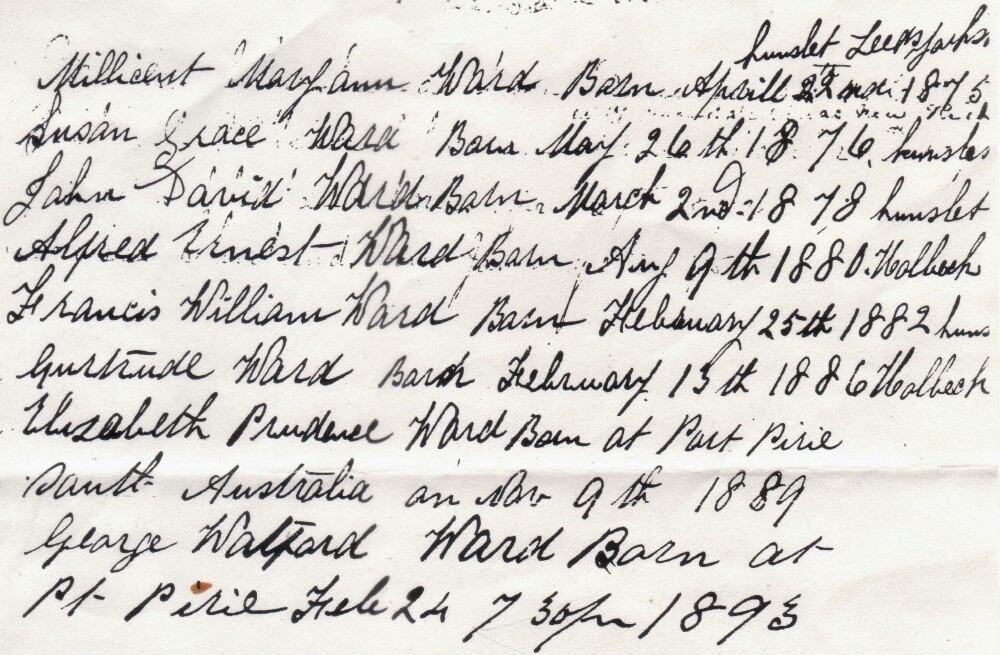 hunslet Leeds Yorks
Millicent Maryann Ward Born Aprill 22nd 1875
Susan Grace Ward Born May 26th 1876 hunslet
John David Ward Born March 2nd 1878 hunslet
Alfred Ernest Ward Born Aug 9th 1880 Holbeck
Francis William Ward Born Febuuary 25th 1882 huns
Gurtrude Ward Born February 15th 1886 Holbeck
Elizabeth Prudence Ward Born at Port Pirie
South Australia on Nov 9th 1889
George Watford Ward Born at
Pt Pirie Feb 24 7 30pm 1893